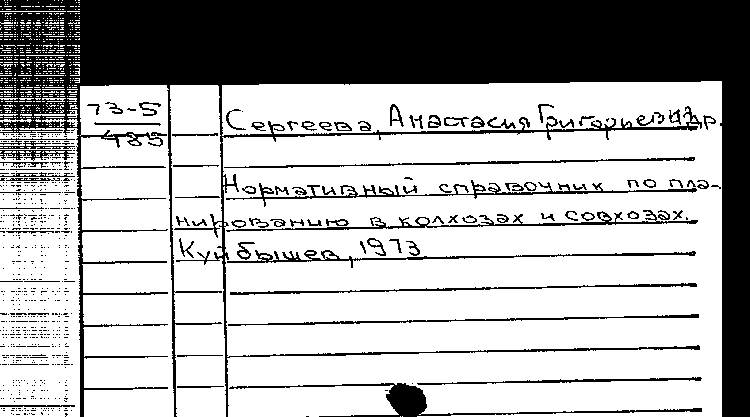 73-5
483
Сергеева, Анастасия Григорьевна и др.
Нормативный справочник по пла-
нированию в колхозах и совхозах.
Куйбышев, 1973